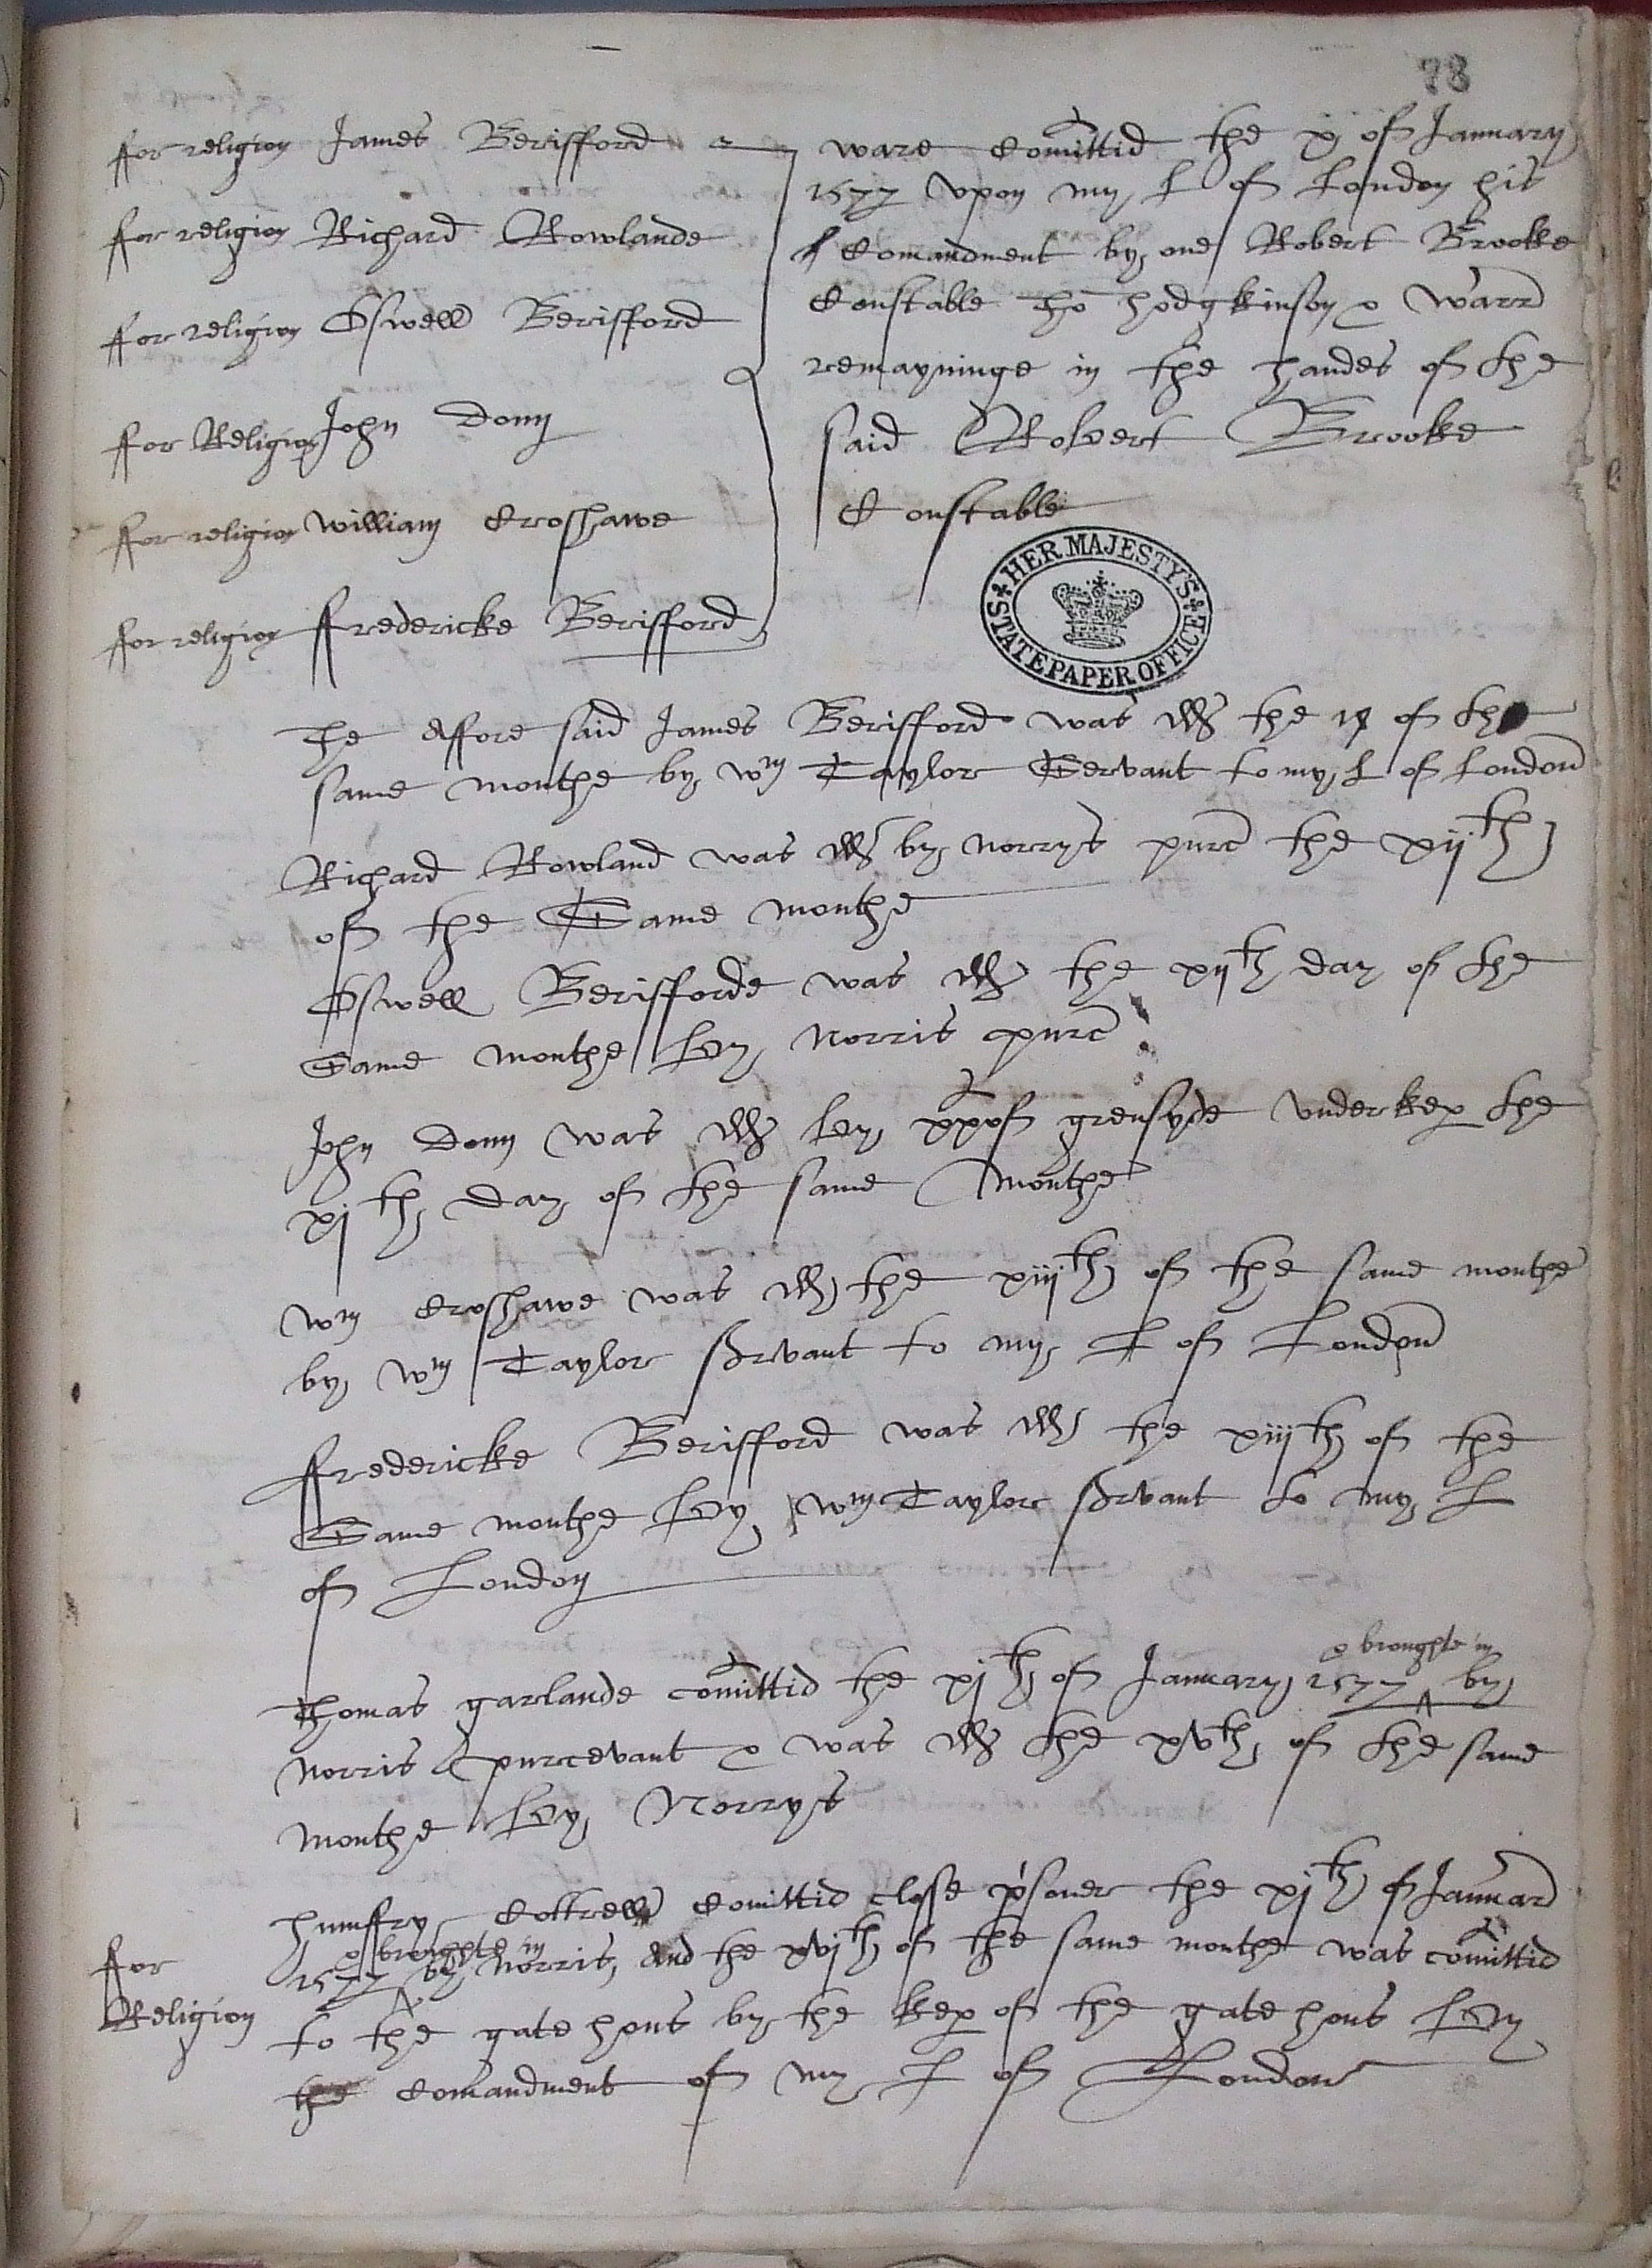 78
ffor religion James Berifford
ffor religion Richard Rowlande
ffor religion Oswell Berifford
ffor Religion John Donn
ffor religion william Croshawe
ffor religion ffredericke Berifford
ware Comittid the xj of January
1577 vpon my L of London his
Comandment by one Robert Brooke
Constable Tho hodgkinson & Warr
remayninge in the handes of the
said Robert Brooke
Constable
HER MAJESTY'S STATE PAPER OFFICE
The Affore said James Berifford was the of the
same monthe by Wm Taylor Servant to my L of London
Richard Rowland was by Norrys purc the xijth
of the Same monthe
Oswell Berifforde was the xijth day of the
Same monthe by Norris purc
John Donn was by grensyde vnderkep the
xjth day of the same Monthe
Wm Croshawe was the xiijth of the same monthe
by Wm Taylor servant to my L of London
ffredericke Berifford was the xiijth of the
Same monthe by Wm Taylor servant to my L
of London
Thomas garlande comittid the xjth of January 1577 & broughte in by
Norris purcevant & was the xvth of the same
monthe by Norrys
humffry Cottrell Comittid close prsoner the xjth of Januar
1577 & broughte in by Norris, And the xvjth of the same monthe was comittid
ffor Religion
to the gate hous by the kep of the gate hous by
the comandment of my L of London